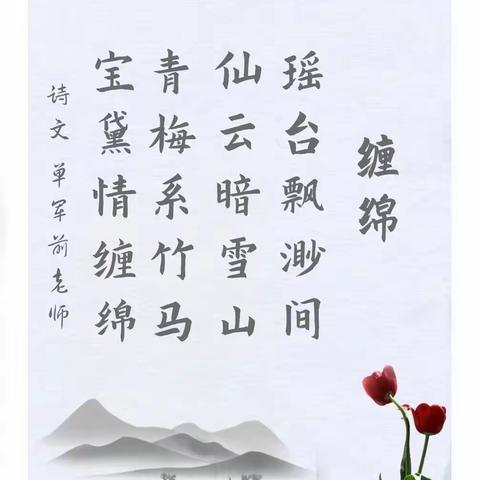 缠绵
瑶台飘渺间
仙云暗雪山
青梅系竹马
宝黛情缠绵
诗文单军前老师